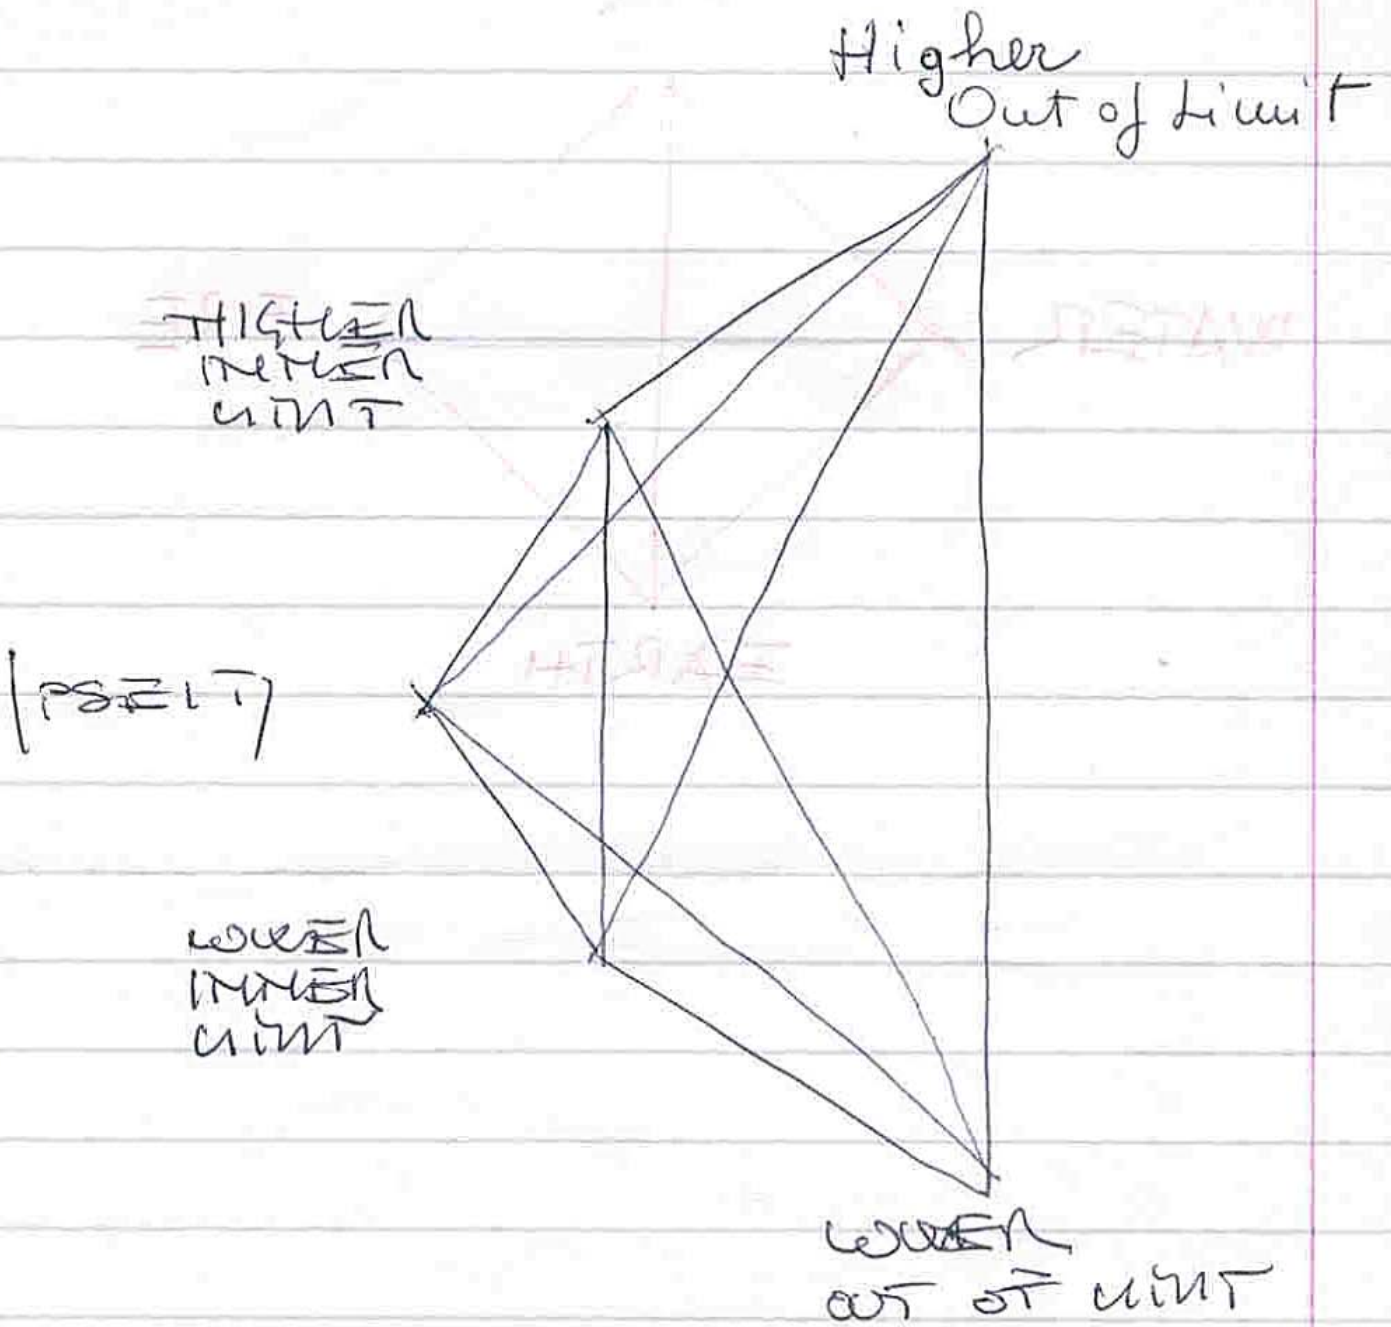 Higher
Out of Limit
HIGHER
INNER
LIMIT
IPSEITY
LOWER
INNER
LIMIT
LOWER
OUT OF LIMIT
WATER
EARTH